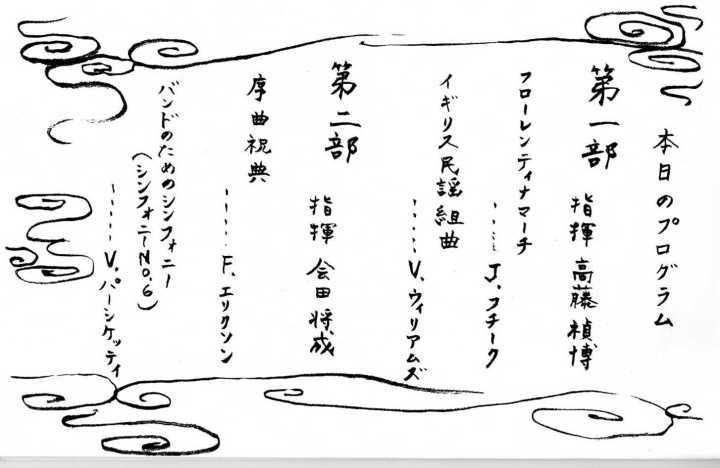 本日のプログラム
第一部
指揮 高藤禎博
フローレンティナマーチ
……J.フチーク
イギリス民謡組曲
……V.ウィリアムズ
第二部
指揮 会田将成
序曲祝典
……F.エリクソン
バンドのためのシンフォニー
(シンフォニーNo.6)
……V.パーシケッティ